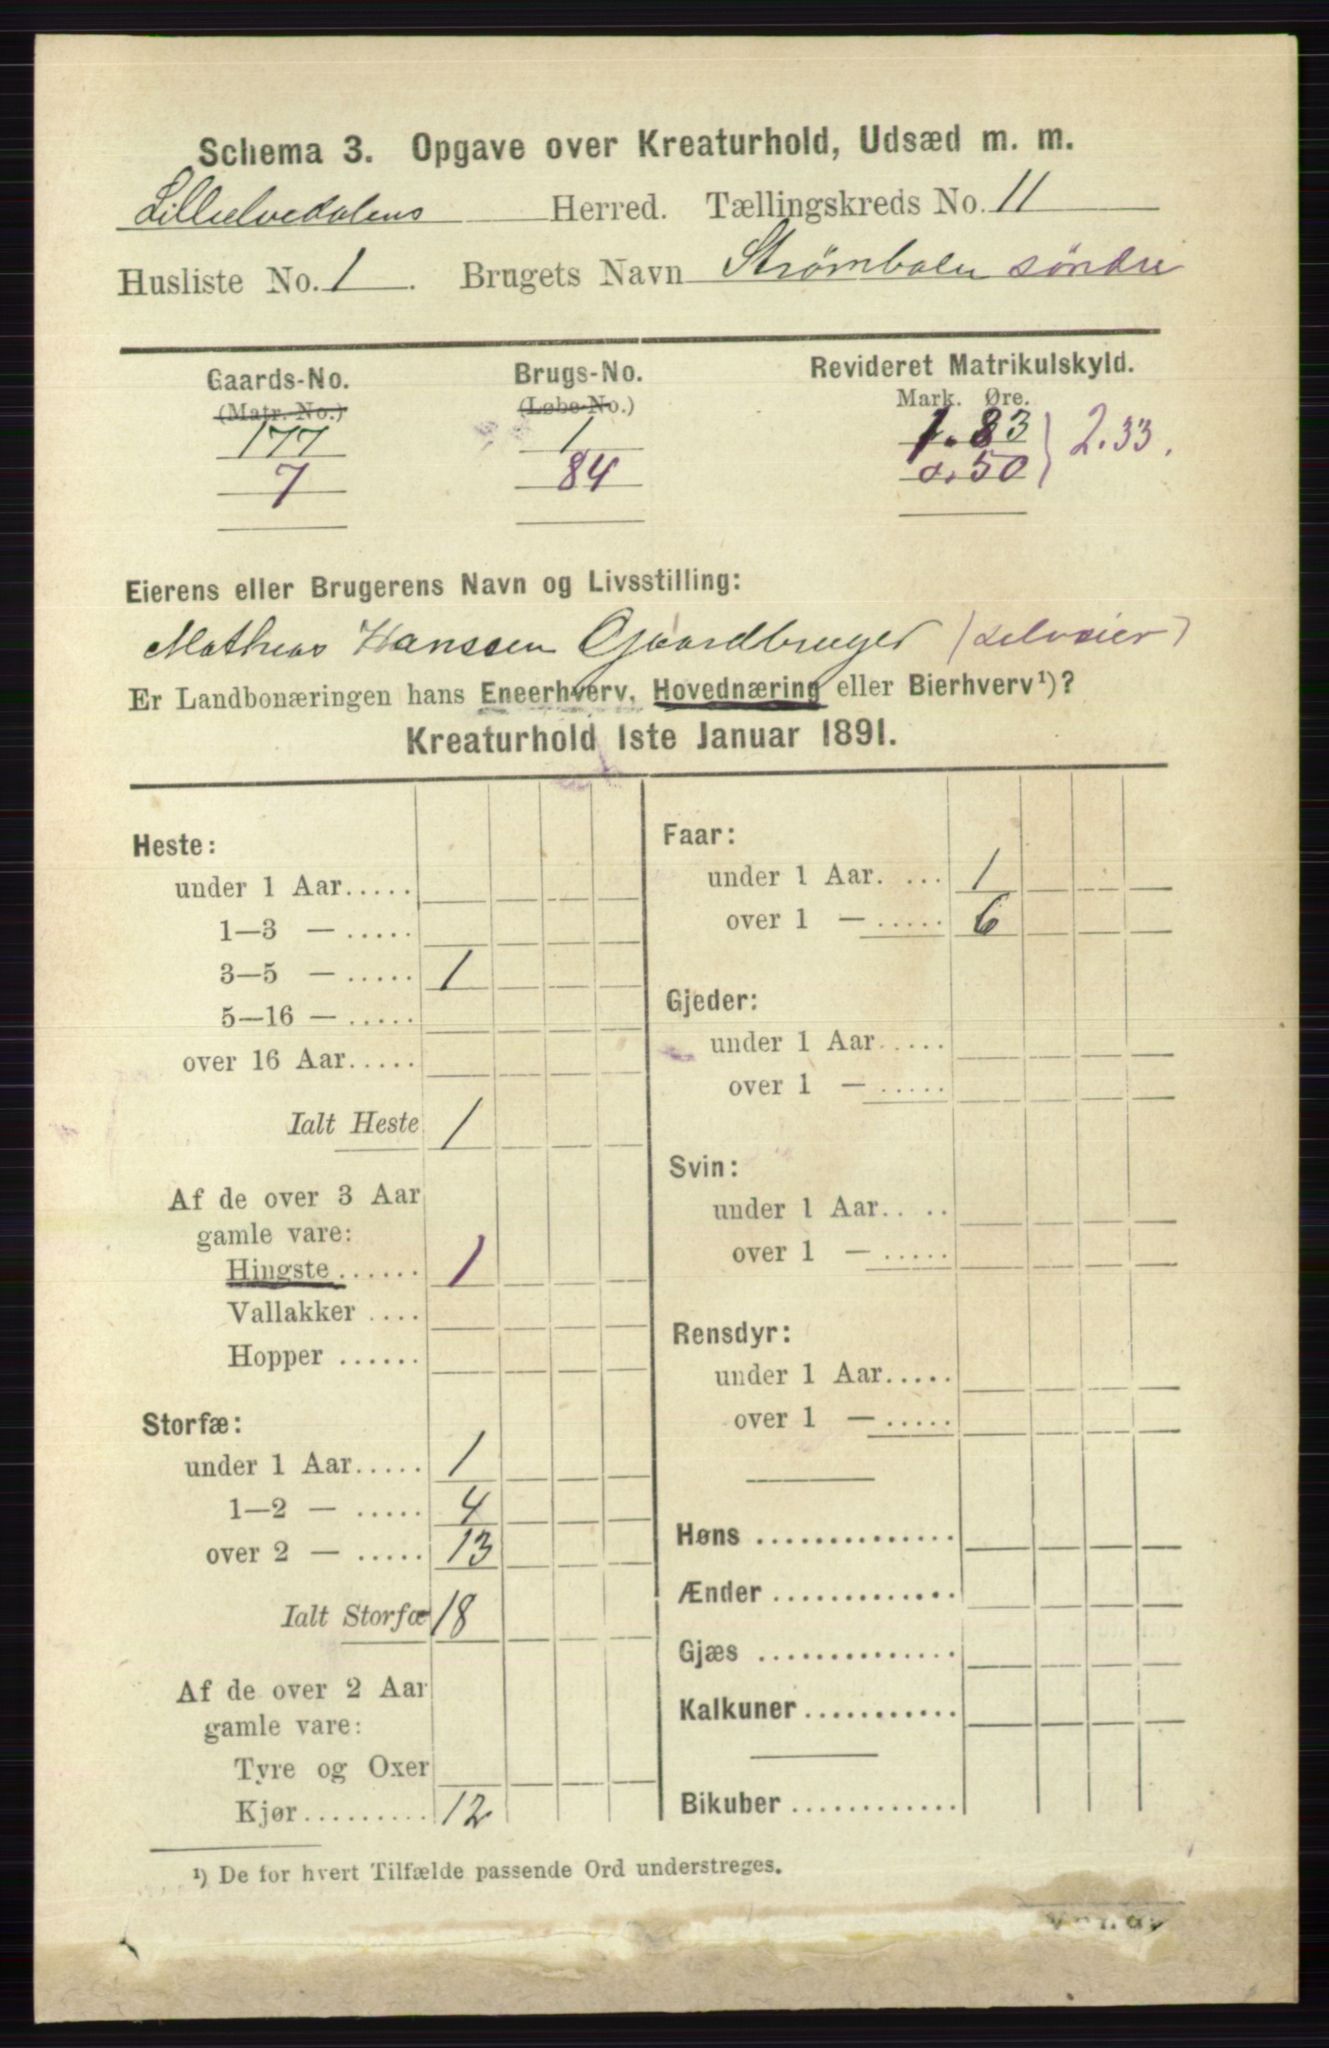 Schema 3. Opgave over Kreaturhold, Udsæd m. m.
Lilleelvedalens Herred. Tællingskreds No. 11
Husliste No. 1. Brugets Navn Strømbolen søndre
Gaards-No. Brugs-No. Revideret Matrikulskyld.
(Matr. No.) (Løbe-No.) Mark. Øre.
177 1 1.83
7 84 0.50 } 2.33.
Eierens eller Brugerens Navn og Livsstilling:
Mathias Hanssen Gaardbruger (selveier)
Er Landbonæringen hans Eneerhverv, Hovednæring eller Bierhverv¹)?
Kreaturhold 1ste Januar 1891.
Heste:
under 1 Aar.....
1—3 — .....
3—5 — ..... 1
5—16 — .....
over 16 Aar.....
Ialt Heste 1
Af de over 3 Aar
gamle vare:
Hingste ...... 1
Vallakker ....
Hopper ......
Storfæ:
under 1 Aar..... 1
1—2 — ..... 4
over 2 — ..... 13
Ialt Storfæ 18
Af de over 2 Aar
gamle vare:
Tyre og Oxer
Kjør......... 12
Faar:
under 1 Aar. ... 1
over 1 — ..... 6
Gjeder:
under 1 Aar.....
over 1 — .....
Svin:
under 1 Aar.. ..
over 1 — .....
Rensdyr:
under 1 Aar.....
over 1 — .....
Høns ..............
Ænder .............
Gjæs ..............
Kalkuner...........
Bikuber .............
¹) De for hvert Tilfælde passende Ord understreges.